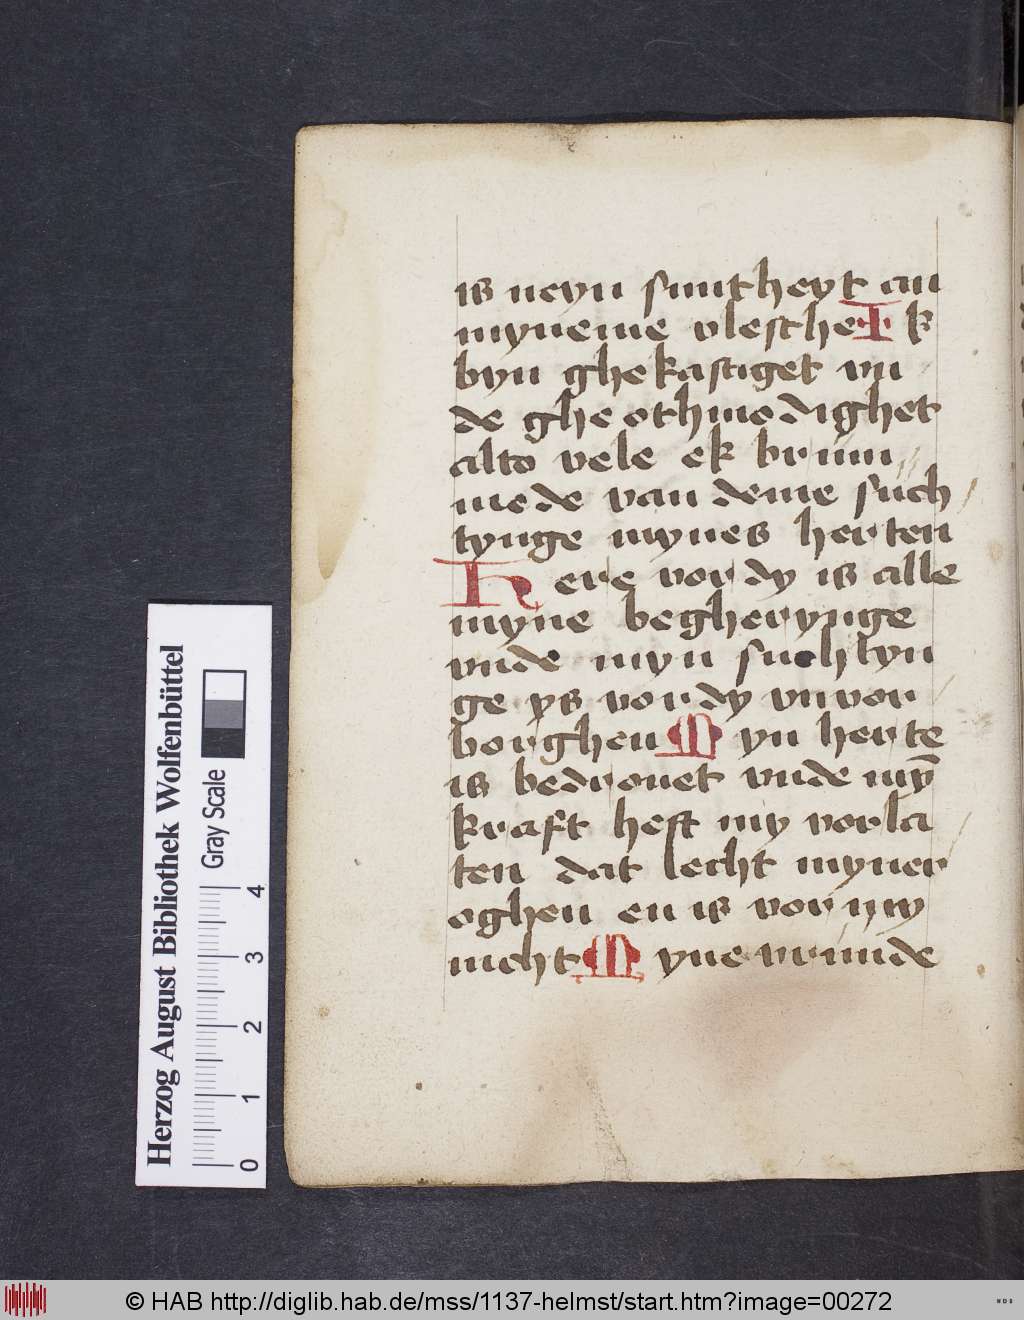 is neyn suntheyt an
myneme vlesche Ik
byn ghekastiget vn
de gheothmodighet
alto vele ek brum
mede van deme such
tynge mynes herten
Here vor dy is alle
myne begherynge
vnde myn suchtyn
ge ys vor dy vnvor
borghen Myn herte
is bedrouet vnde mȳ
kraft heft my vorla
ten dat lecht myner
oghen en is vor my
nicht Myne vrunde
Herzog August Bibliothek Wolfenbüttel
Gray Scale
0 1 2 3 4
© HAB http://diglib.hab.de/mss/1137-helmst/start.htm?image=00272